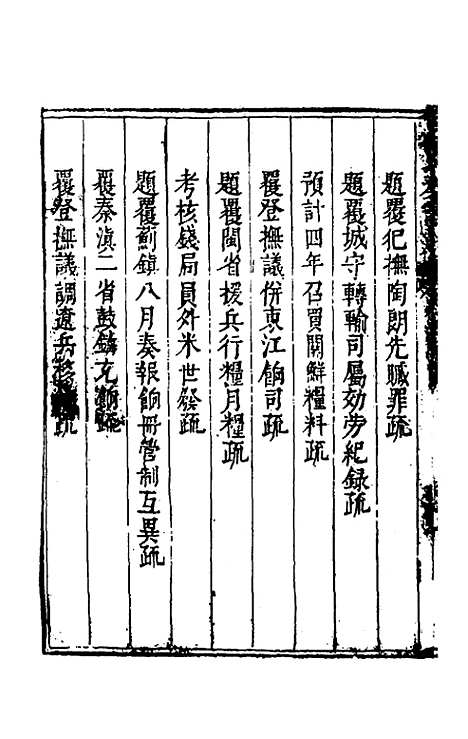 題覆犯撫陶朗先贓罪疏
題覆城守轉輸司屬効劳紀録疏
預計四年召買関鮮糧料疏
覆登撫議併東江餉司疏
題覆閩省援兵行糧月糧疏
考核錢局員外米世發疏
題覆薊鎮八月奏報餉冊管制互異疏
覆秦滇二省鼓鑄充餉疏
覆登撫議調遼兵移疏